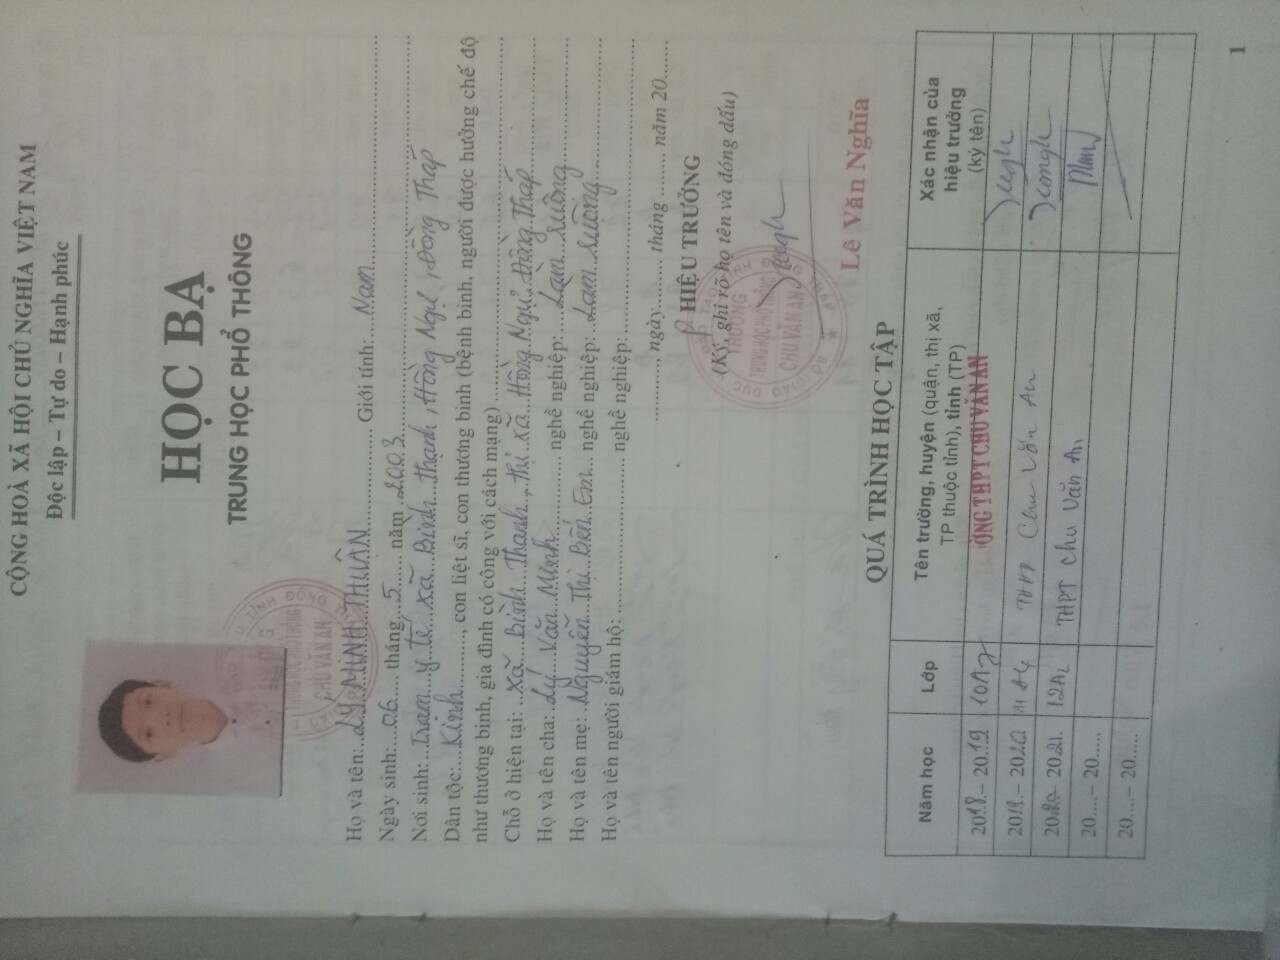 CỘNG HOÀ XÃ HỘI CHỦ NGHĨA VIỆT NAM
Độc lập – Tự do – Hạnh phúc
HỌC BẠ
TRUNG HỌC PHỔ THÔNG
TRUNG HỌC PHỔ THÔNG
CHU VĂN AN
Họ và tên: LÝ MINH THUÂN Giới tính: Nam
Ngày sinh: 06 tháng 5 năm 2003
Nơi sinh: Trạm y tế xã Bình Thạnh, Hồng Ngự, Đồng Tháp
Dân tộc: Kinh, con liệt sĩ, con thương binh (bệnh binh, người được hưởng chế độ
như thương binh, gia đình có công với cách mạng)
Chỗ ở hiện tại: xã Bình Thạnh, thị xã Hồng Ngự, Đồng Tháp
Họ và tên cha: Lý Văn Minh nghề nghiệp: Làm ruộng
Họ và tên mẹ: Nguyễn Thị Bến Em nghề nghiệp: Làm ruộng
Họ và tên người giám hộ: nghề nghiệp:
........, ngày........ tháng ........ năm 20........
P HIỆU TRƯỞNG
(Ký, ghi rõ họ tên và đóng dấu)
TRƯỜNG
TRUNG HỌC PHỔ THÔNG
CHU VĂN AN
Lê Văn Nghĩa
QUÁ TRÌNH HỌC TẬP
Năm học Lớp Tên trường, huyện (quận, thị xã, TP thuộc tỉnh), tỉnh (TP) Xác nhận của hiệu trưởng (ký tên)
2018 – 2019 10A7 ỜNG THPT CHU VĂN AN
2019 – 2020 THPT Chu Văn An
2020 – 2021 12A2 THPT Chu Văn An
20..... – 20.....
20..... – 20.....
1